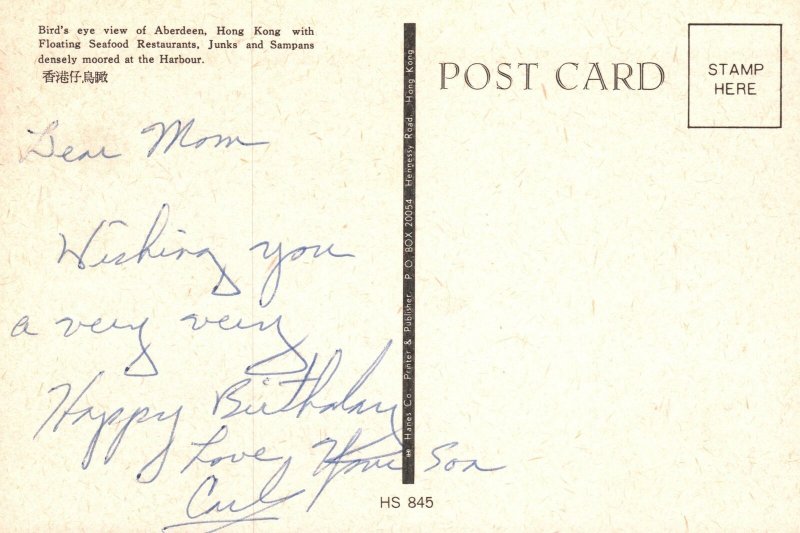 Bird's eye view of Aberdeen, Hong Kong with
Floating Seafood Restaurants, Junks and Sampans
densely moored at the Harbour.
香港仔鳥瞰
Dear Mom
Wishing you
a very very
Happy Birthday
Love, Your Son
Carl
Hanes Co. Printer & Publisher. P. O. BOX 20054 Hennessy Road, Hong Kong
POST CARD
STAMP
HERE
HS 845